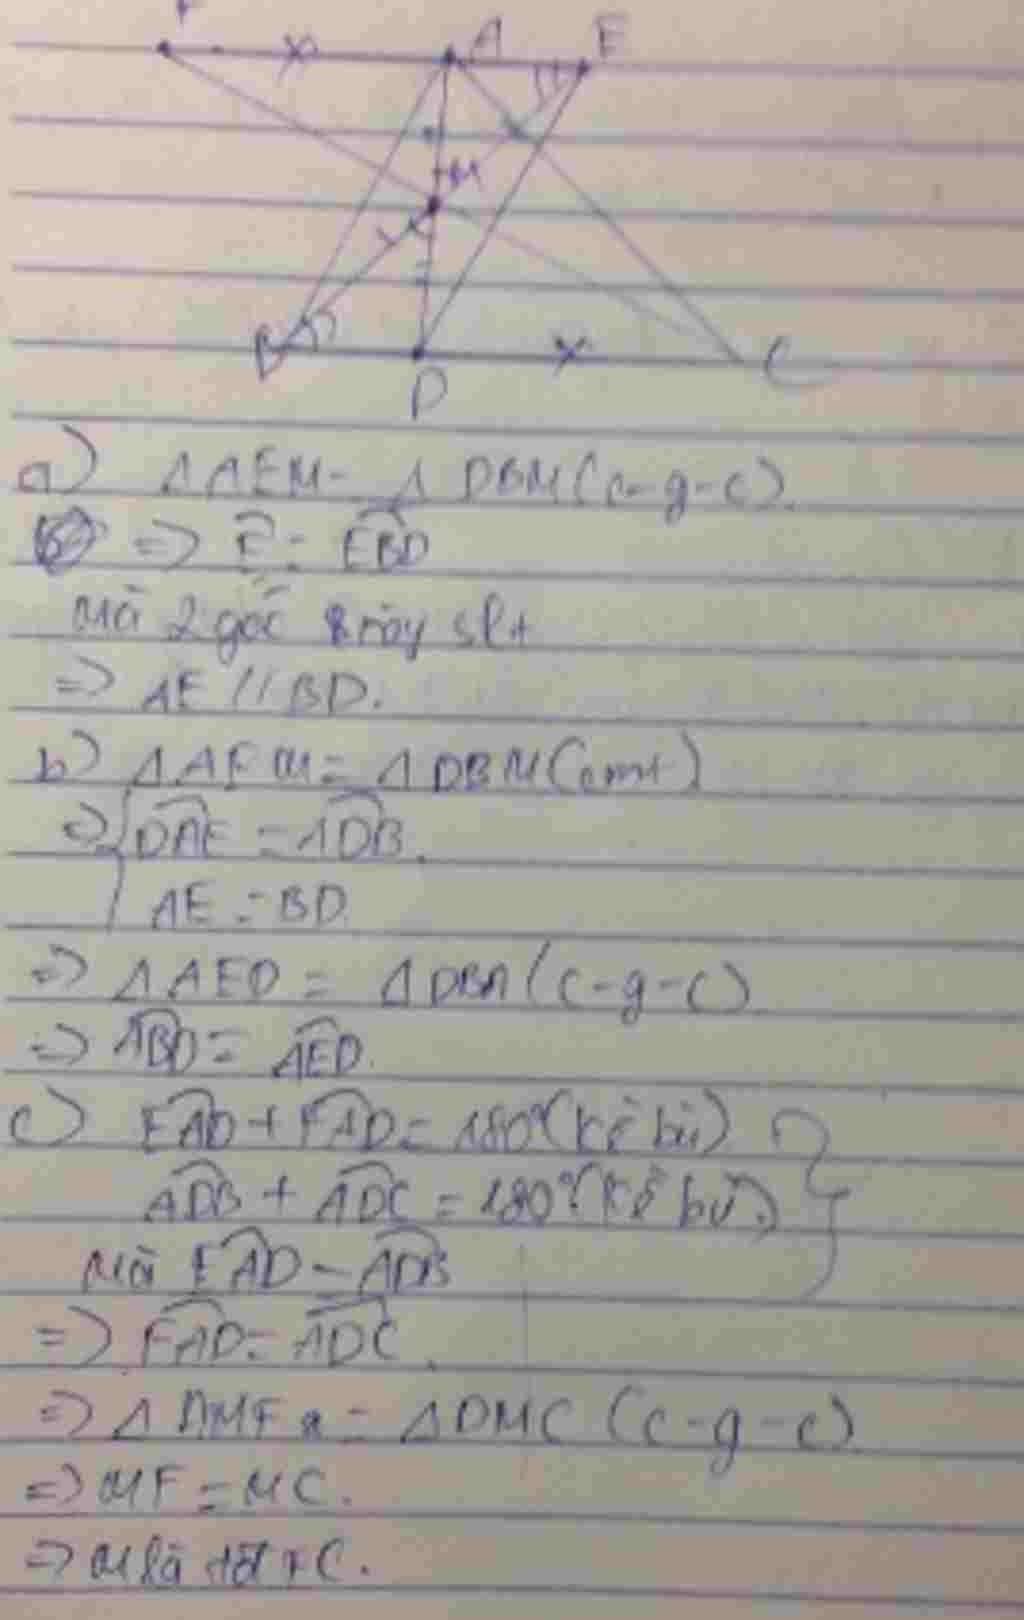 F A E
M
B D C
a) Δ AEM = Δ DBM (c-g-c).
=> Ê = EBD
mà 2 góc này slt
=> AE // BD.
b) Δ AEM = Δ DBM (cmt)
=> { DAE = ADB.
AE = BD.
=> Δ AED = Δ DBA (c-g-c)
=> ABD = AED.
c) EAD + FAD = 180° (kề bù)
ADB + ADC = 180° (kề bù)
mà EAD = ADB
=> FAD = ADC.
=> Δ AMF = Δ DMC (c-g-c)
=> MF = MC.
=> M là FC.